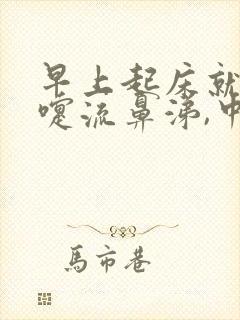 早上起床就
嚏流鼻涕,中
馬市巷